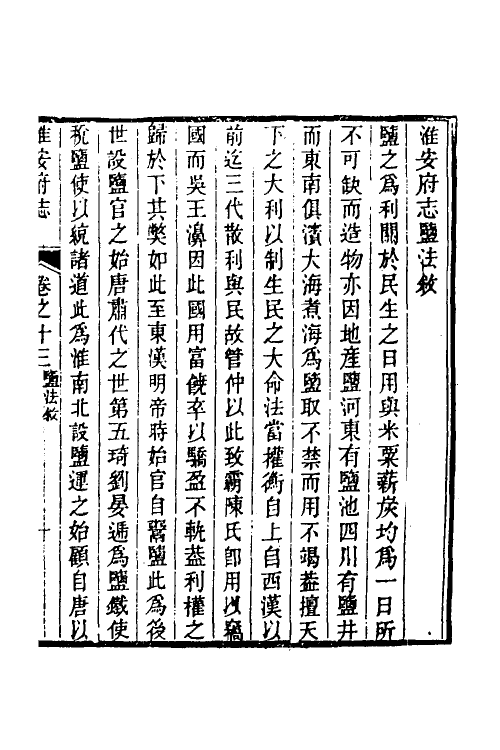 淮安府志鹽法敘
鹽之爲利關於民生之日用與米粟薪炭均爲一日所
不可缺而造物亦因地產鹽河東有鹽池四川有鹽井
而東南俱濱大海煮海爲鹽取不禁而用不竭蓋擅天
下之大利以制生民之大命法當權衡自上自西漢以
前迄三代散利與民故管仲以此致霸陳氏即用以竊
國而吳王濞因此國用富饒卒以驕盈不軌蓋利權之
歸於下其弊如此至東漢明帝時始官自鬻鹽此爲後
世設鹽官之始唐肅代之世第五琦劉晏遞爲鹽鐵使
稅鹽使以統諸道此爲淮南北設鹽運之始顧自唐以
淮安府志
卷之十三
鹽法敘